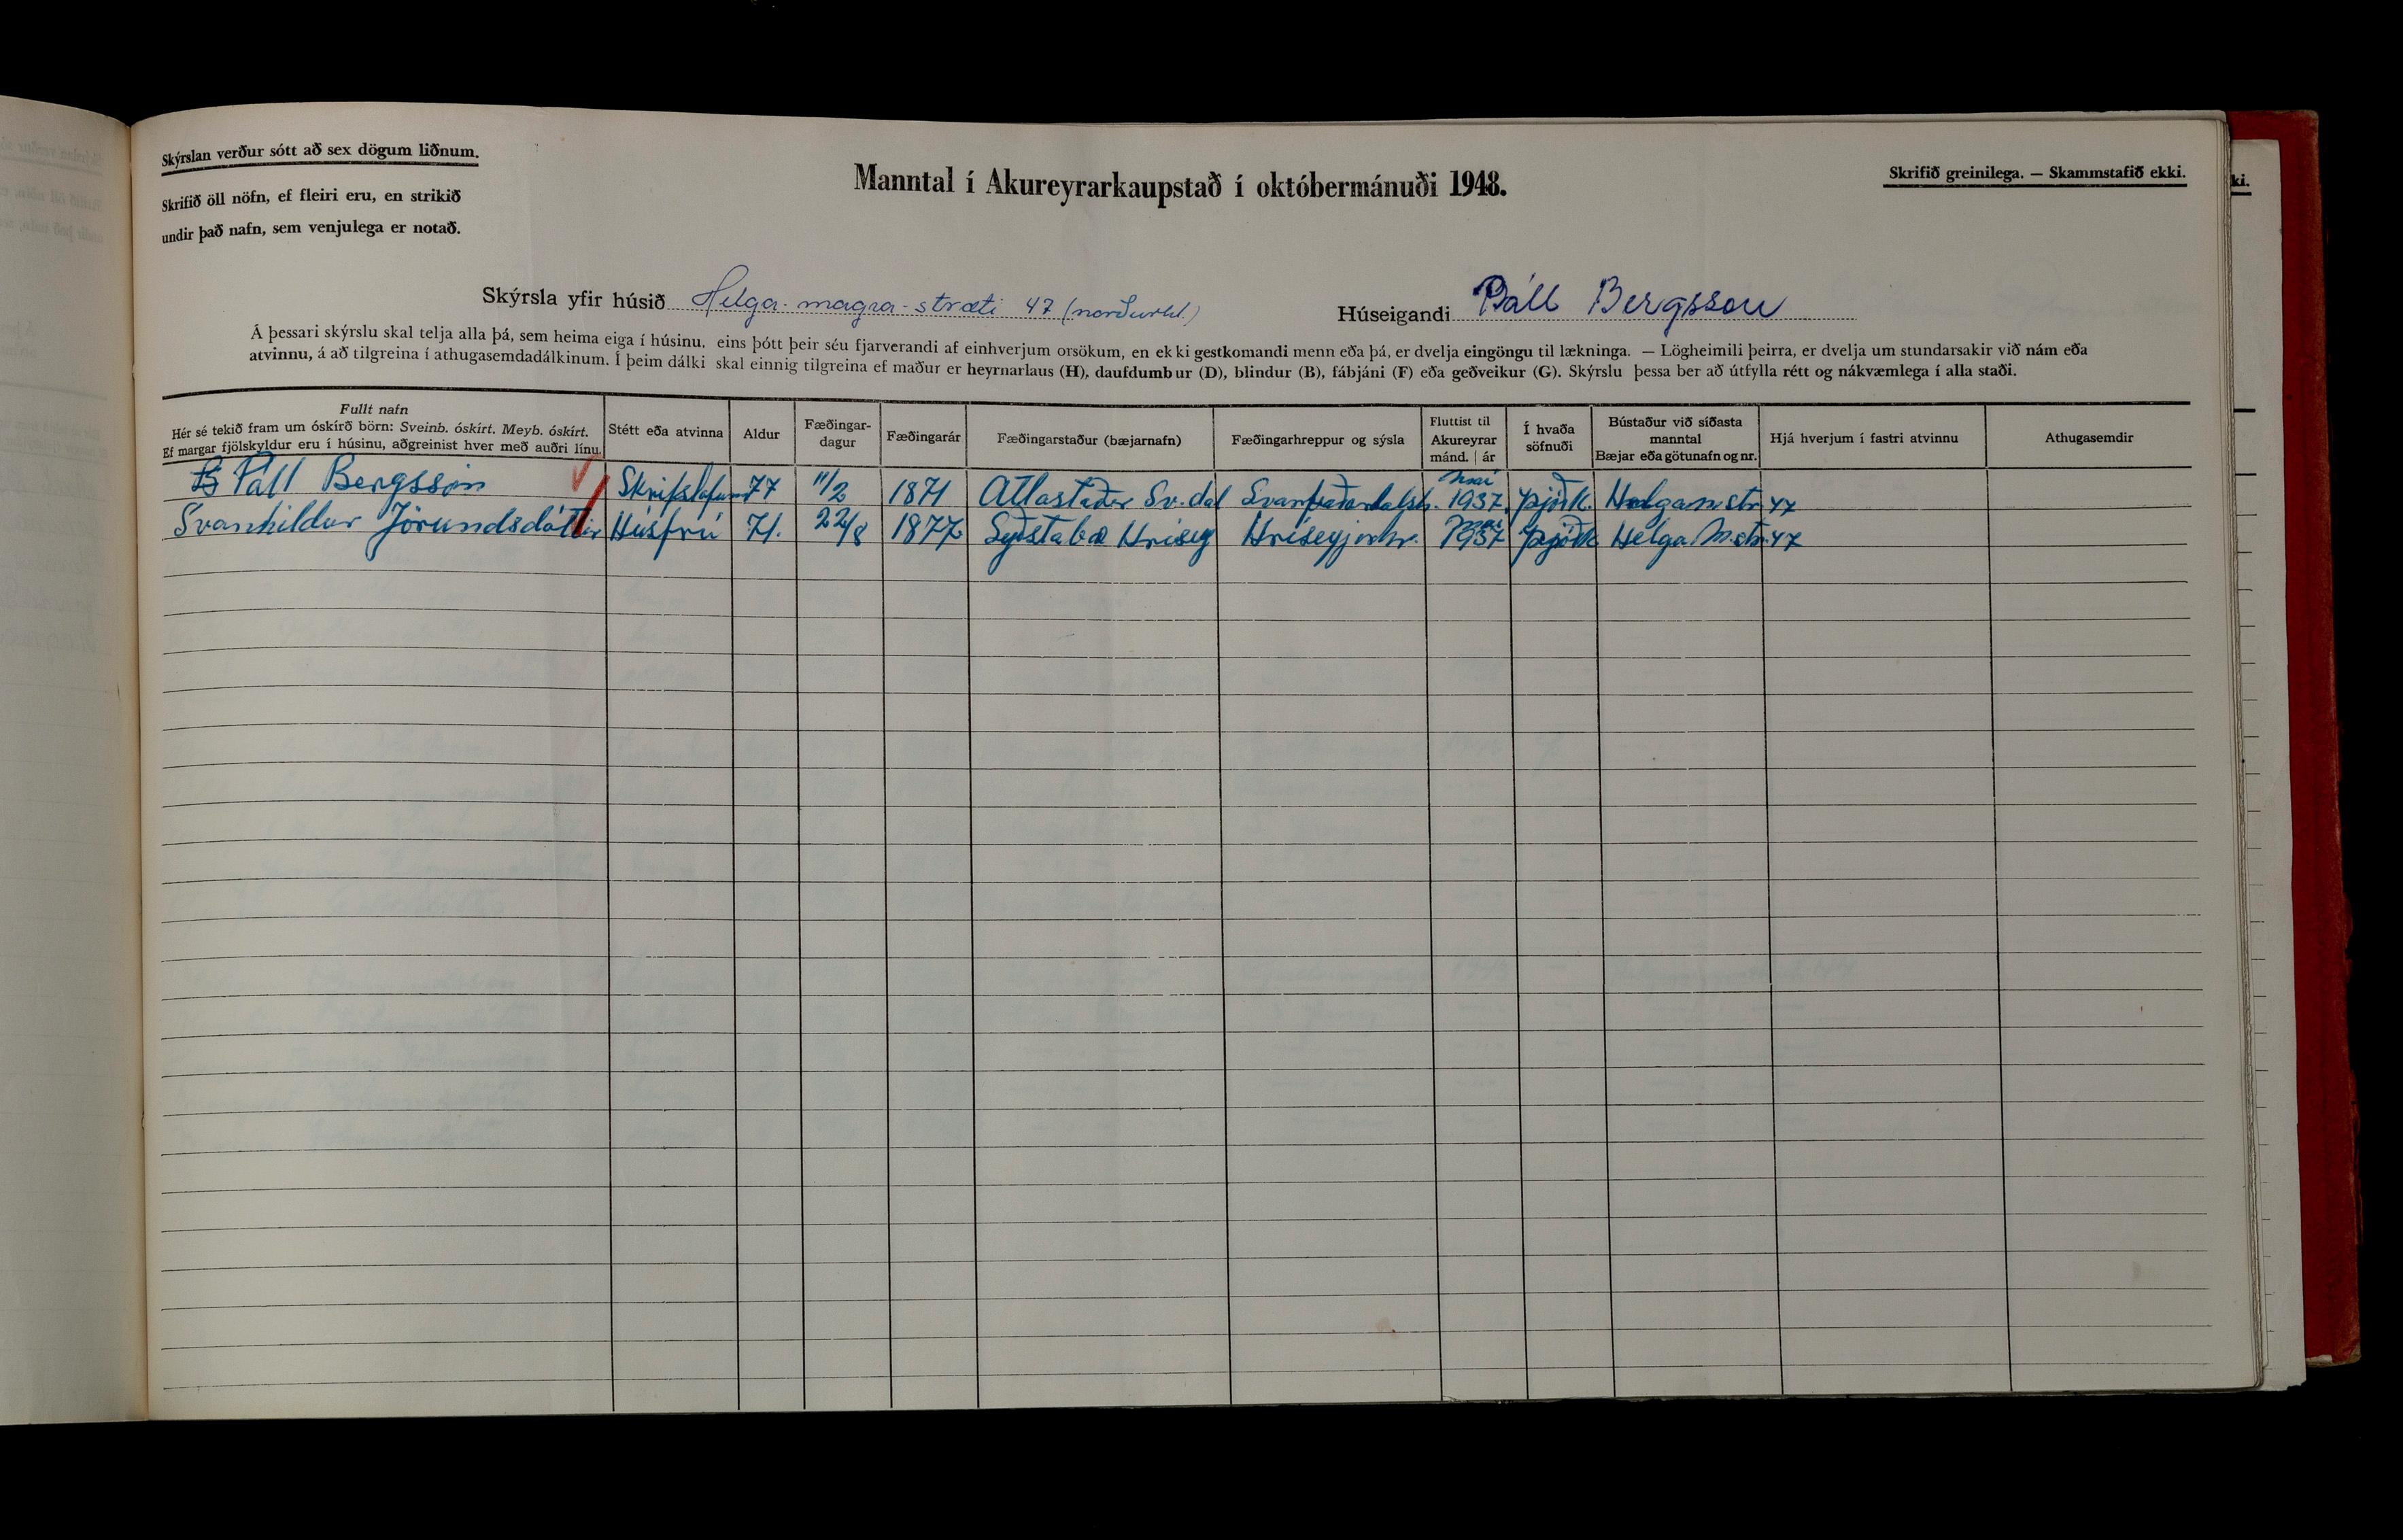 Skýrslan verður sótt að sex dögum liðnum.
Skrifið öll nöfn, ef fleiri eru, en strikið
undir það nafn, sem venjulega er notað.
Manntal í Akureyrarkaupstað í októbermánuði 1948.
Skrifið greinilega. — Skammstafið ekki.
ki.
Skýrsla yfir húsið Helga-magra-stræti 47 (norðurhl.) Húseigandi Páll Bergsson
Á þessari skýrslu skal telja alla þá, sem heima eiga í húsinu, eins þótt þeir séu fjarverandi af einhverjum orsökum, en ekki gestkomandi menn eða þá, er dvelja eingöngu til lækninga. — Lögheimili þeirra, er dvelja um stundarsakir við nám eða
atvinnu, á að tilgreina í athugasemdadálkinum. Í þeim dálki skal einnig tilgreina ef maður er heyrnarlaus (H), daufdumbur (D), blindur (B), fábjáni (F) eða geðveikur (G). Skýrslu þessa ber að útfylla rétt og nákvæmlega í alla staði.
Fullt nafn
Hér sé tekið fram um óskírð börn: Sveinb. óskírt. Meyb. óskírt.
Ef margar fjölskyldur eru í húsinu, aðgreinist hver með auðri línu.
Stétt eða atvinna
Aldur
Fæðingar-
dagur
Fæðingarár
Fæðingarstaður (bæjarnafn)
Fæðingarhreppur og sýsla
Fluttist til
Akureyrar
mánd. | ár
Í hvaða
söfnuði
Bústaður við síðasta
manntal
Bæjar eða götunafn og nr.
Hjá hverjum í fastri atvinnu
Athugasemdir
Páll Bergsson 77 11/2 1871 Atlastaðir Sv.dal Svarfaðardalsh. maí 1937 þjóðk. Helgamstr 47
Svanhildur Jörundsdóttir Húsfrú 71. 22/8 1877 Syðstabæ Hrísey Hríseyjarhr. maí 1937 þjóðk Helga M.str. 47